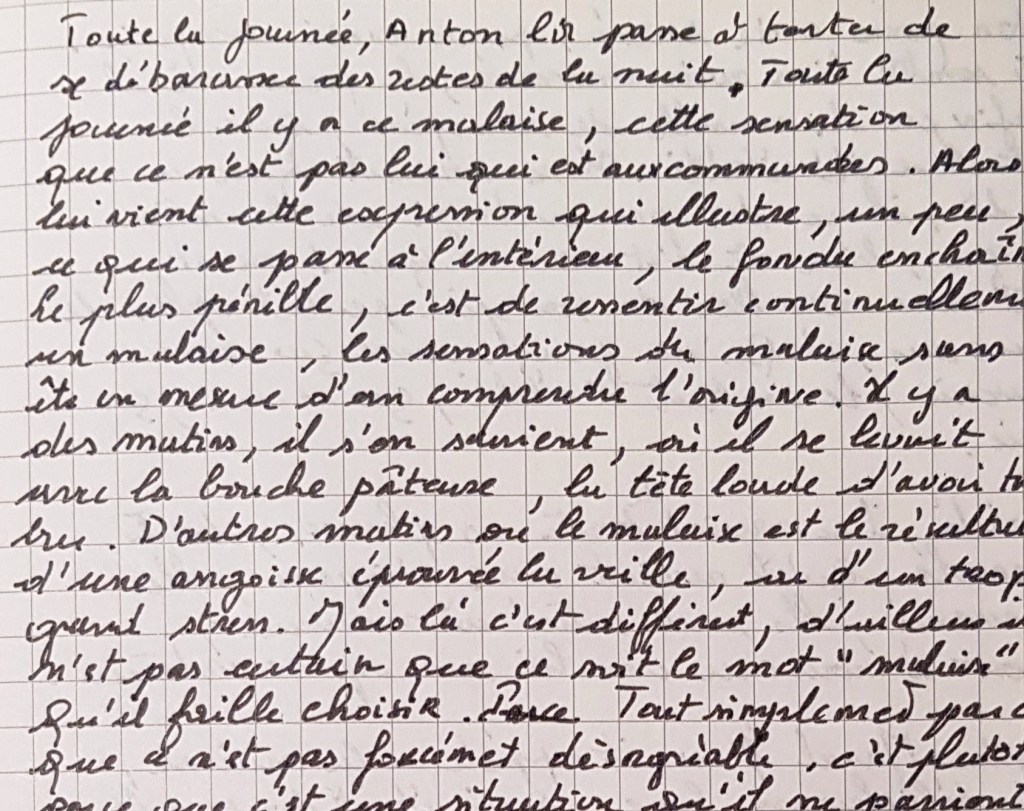 Toute la journée, Anton Lir passe à tenter de
se débarrasser des restes de la nuit. Toute la
journée il y a ce malaise, cette sensation
que ce n'est pas lui qui est aux commandes. Alors
lui vient cette expression qui illustre, un peu,
ce qui se passe à l'intérieur, le fondu enchaîn
Le plus pénible, c'est de ressentir continuellem
un malaise, les sensations du malaise sans
être en mesure d'en comprendre l'origine. Il y a
des matins, il s'en souvient, où il se levait
avec la bouche pâteuse, la tête lourde d'avoir tr
bu. D'autres matins où le malaise est le résulta
d'une angoisse éprouvée la veille, ou d'un trop
grand stress. Mais là c'est différent, d'ailleurs
n'est pas certain que ce soit le mot "malaise"
qu'il faille choisir. Tout simplement parc
que ce n'est pas forcémet désagréable, c'est plutot
parce que c'est une situation qu'il ne